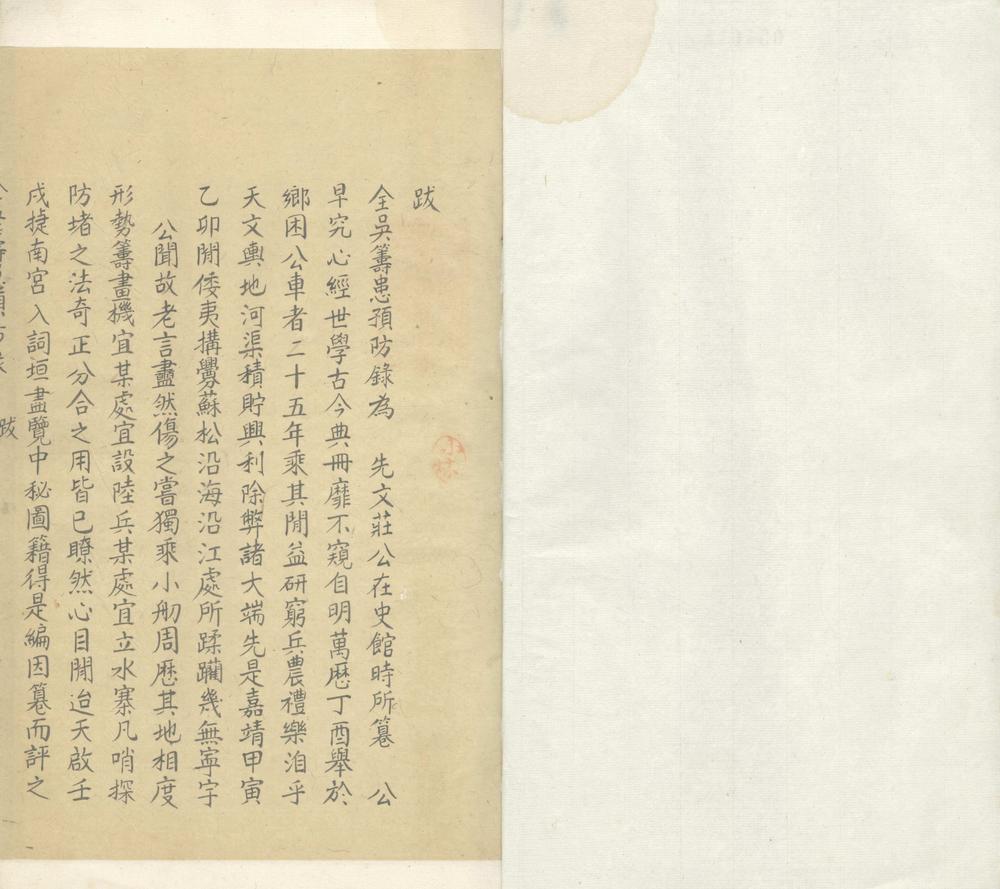 跋
全吳籌患預防錄為　先文莊公在史館時所篹　公
早究心經世學古今典冊靡不窺自明萬曆丁酉舉於
鄉困公車者二十五年乘其閒益研窮兵農禮樂洎乎
天文輿地河渠積貯興利除弊諸大端先是嘉靖甲寅
乙卯閒倭夷搆釁蘇松沿海沿江處所蹂躪幾無寧宇
公聞故老言盡然傷之嘗獨乘小舠周歷其地相度
形勢籌畫機宜某處宜設陸兵某處宜立水寨凡哨探
防堵之法奇正分合之用皆已瞭然心目閒迨天啟壬
戌捷南宮入詞垣盡覽中秘圖籍得是編因篹而評之
跋